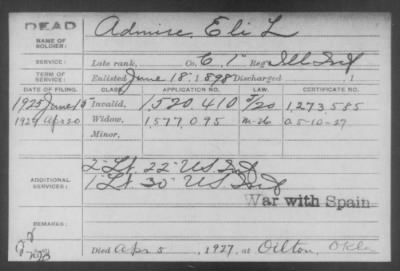 DEAD
NAME OF SOLDIER: Admire, Eli L
SERVICE: Late rank, Co. C, 1" Reg't Ill Inf
TERM OF SERVICE: Enlisted June 18, 1898 Discharged , 1
DATE OF FILING. CLASS. APPLICATION NO. LAW. CERTIFICATE NO.
1925 June 15 Invalid, 1,520,410 5/20 1,273,585
1927 Apr 20 Widow, 1,577,095 M-26 a 5-10-27
Minor,
ADDITIONAL SERVICES: 2" Lt. 22" US Inf
1" Lt 30" US Inf
War with Spain
REMARKS:
Died Apr 5, 1927, at Oilton, Okla